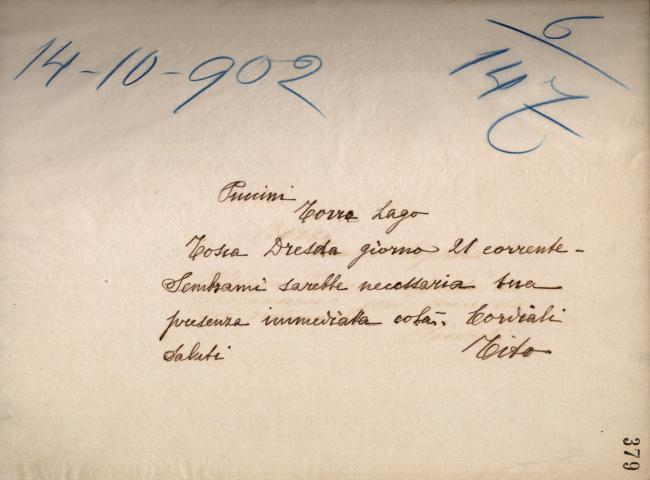 14-10-902
6
147
Puccini
Torre Lago
Tosca Dresda giorno 21 corrente -
Sembrami sarebbe necessaria tua
presenza immediata colà. Cordiali
saluti Tito
379